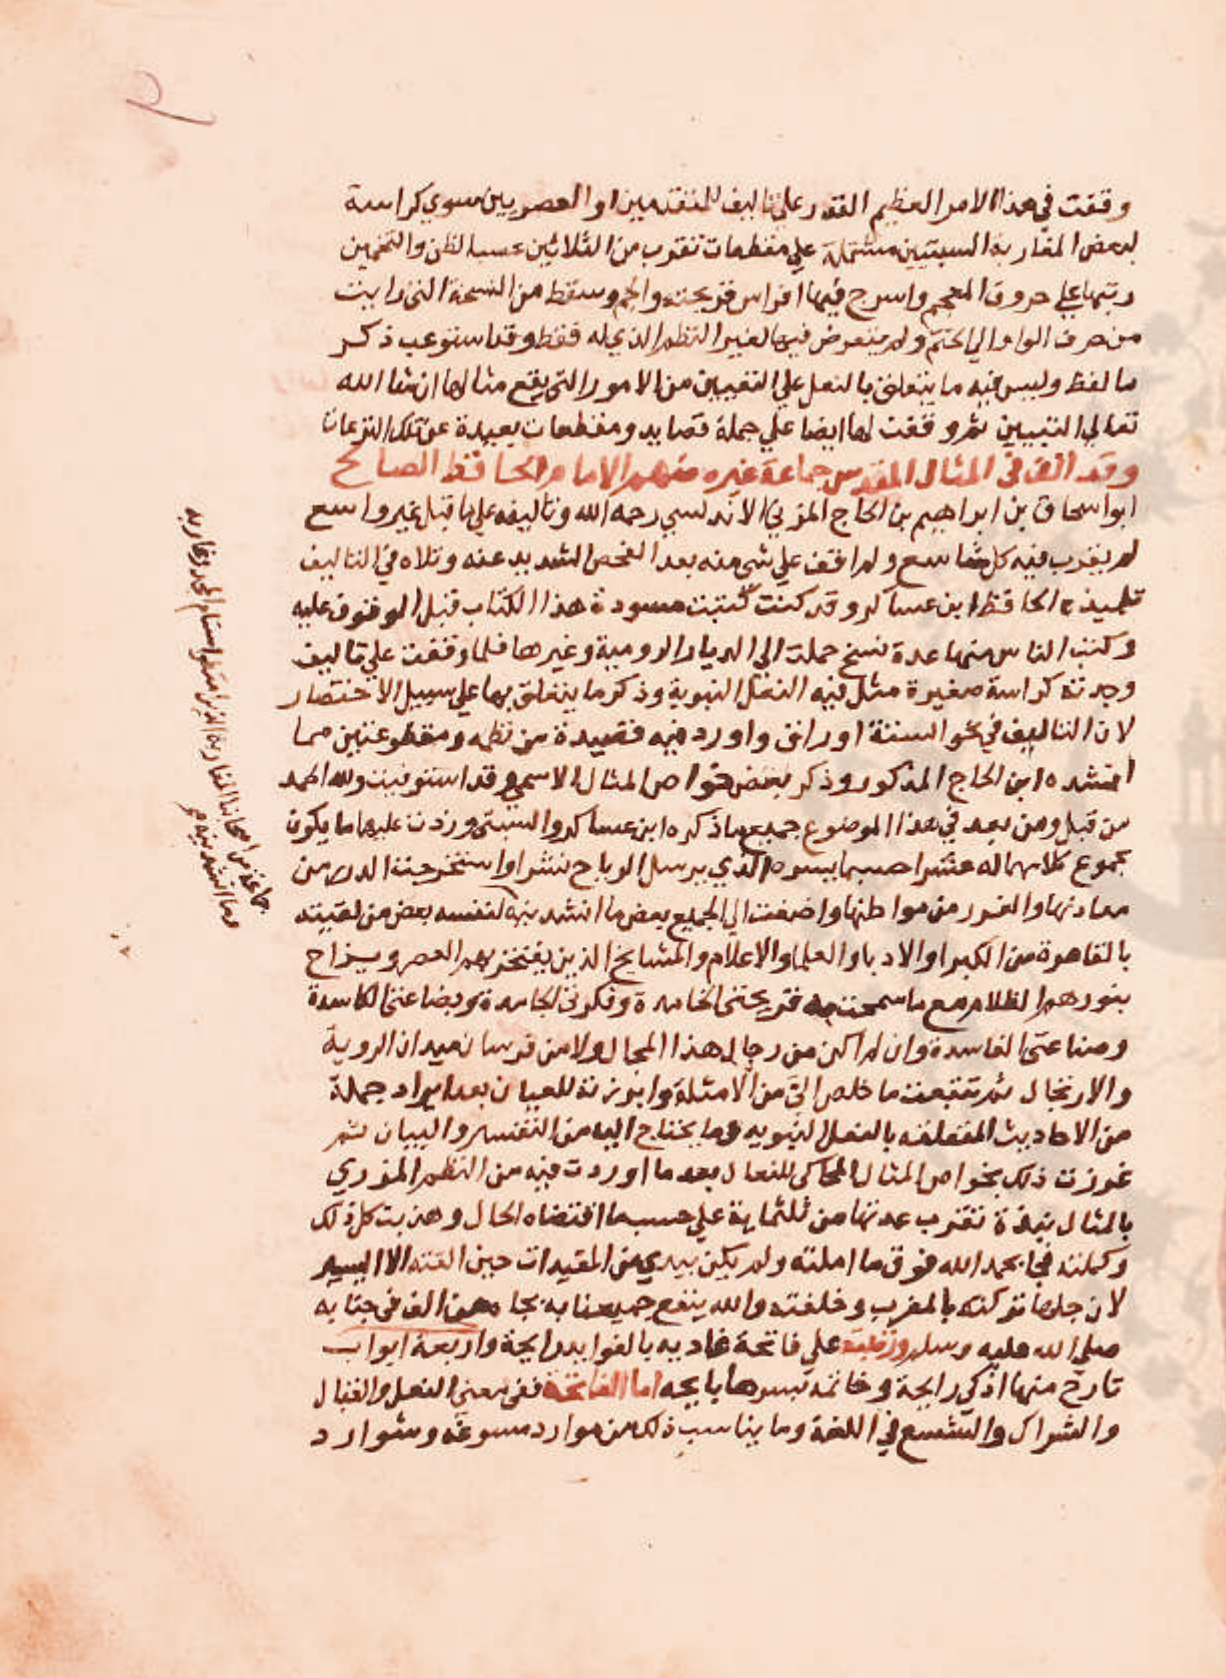 وقفت في هذا الامر العظيم القدر علي تاليف للمتقدمين او العصريين سوي كراسة
لبعض المغاربة السبتيين مشتملة علي مقطعات تقرب من الثلاثين بحسب الظن والتخمين
رتبها علي حروف المعجم واسرج فيها افراس قريحته والجم وسقط من النسخة التي رايت
من حرف الواو الي الختم ولم يتعرض فيها لغير النظم الذي له فقط وقد استوعب ذكر
ما لفظ وليس فيه ما يتعلق بالنعل علي التعيين من الامور التي يقع مثالها ان شا الله
تعالي التبيين ثم وقفت لها ايضا علي جملة قصايد ومقطعات بعيدة عن تلك النزعات
وقد الف في المثال المقدس جماعة غيره منهم الامام الحافظ الصالح
ابو اسحاق بن ابراهيم بن الحاج المزني الاندلسي رحمه الله وتاليفه علي ما قيل غير واسع
لم يقرب فيه كل شاسع ولم اقف علي شي منه بعد الفحص الشديد عنه وتلاه في التاليف
تلميذه الحافظ ابن عساكر وقد كنت كتبت مسودة هذا الكتاب قبل الوقوف عليه
وكتب الناس منها عدة نسخ حملت الي الديار الرومية وغيرها فلما وقفت علي تاليف
وجدته كراسة صغيرة مثل فيه النعل النبوية وذكر ما يتعلق بها علي سبيل الاختصار
لان التاليف في نحو الستة اوراق واورد فيه قصيدة من نظمه ومقطوعتين مما
انشده ابن الحاج المذكور وذكر بعض خواص المثال الاسمي وقد استوفيت ولله الحمد
من قبل ومن بعد في هذا الموضوع جميع ما ذكره ابن عساكر والسبتي وزدت عليهما ما يكون
مجموع كلامهما له عشرا حسبما يسره الذي يرسل الرياح نشرا واستخرجت الدرر من
معادنها والغرر من مواطنها واضفت الي الجميع بعض ما انشدنيه لنفسه بعض من لقيته
بالقاهرة من الكبرا والادبا والعلما والاعلام والمشايخ الذين يفتخر بهم العصر ويزاح
بنورهم الظلام مع ما سمحت به قريحتي الخامدة وفكرتي الجامدة وبضاعتي الكاسدة
وصناعتي الفاسدة وان لم اكن من رجال هذا المجال ولا من فرسان ميدان الروية
والارتجال ثم تتبعت ما خلص الي من الامثلة وابرزته للعيان بعد ايراد جملة
من الاحاديث المتعلقة بالنعل النبويه وما يحتاج اليه من التفسير والبيان ثم
عززت ذلك بخواص المثال المحاكي للنعال بعد ما اوردت فيه من النظم المزري
بالمثال نبذة تقترب عدتها من ثلثماية علي حسب ما اقتضاه الحال وهذبت كل ذلك
وكملته فجا بحمد الله فوق ما املته ولم يكن بيدي من المقيدات حين الفته الا اليسير
لان جلها تركته بالمغرب وخلفته والله ينفع جميعنا به بجاه من الف في جنابه
صلي الله عليه وسلم ورتبته علي فاتحة غاديه بالفوايد رايحة واربعة ابواب
تارج منها اذكي رايحة وخاتمه تيسرها بايحه اما الفاتحة ففي معني النعل والقبال
والشراك والشسع في اللغة وما يناسب ذلك من موارد مسوغة وشوارد
جماعة من اصحابنا المغاربة
ومما انشدنيه